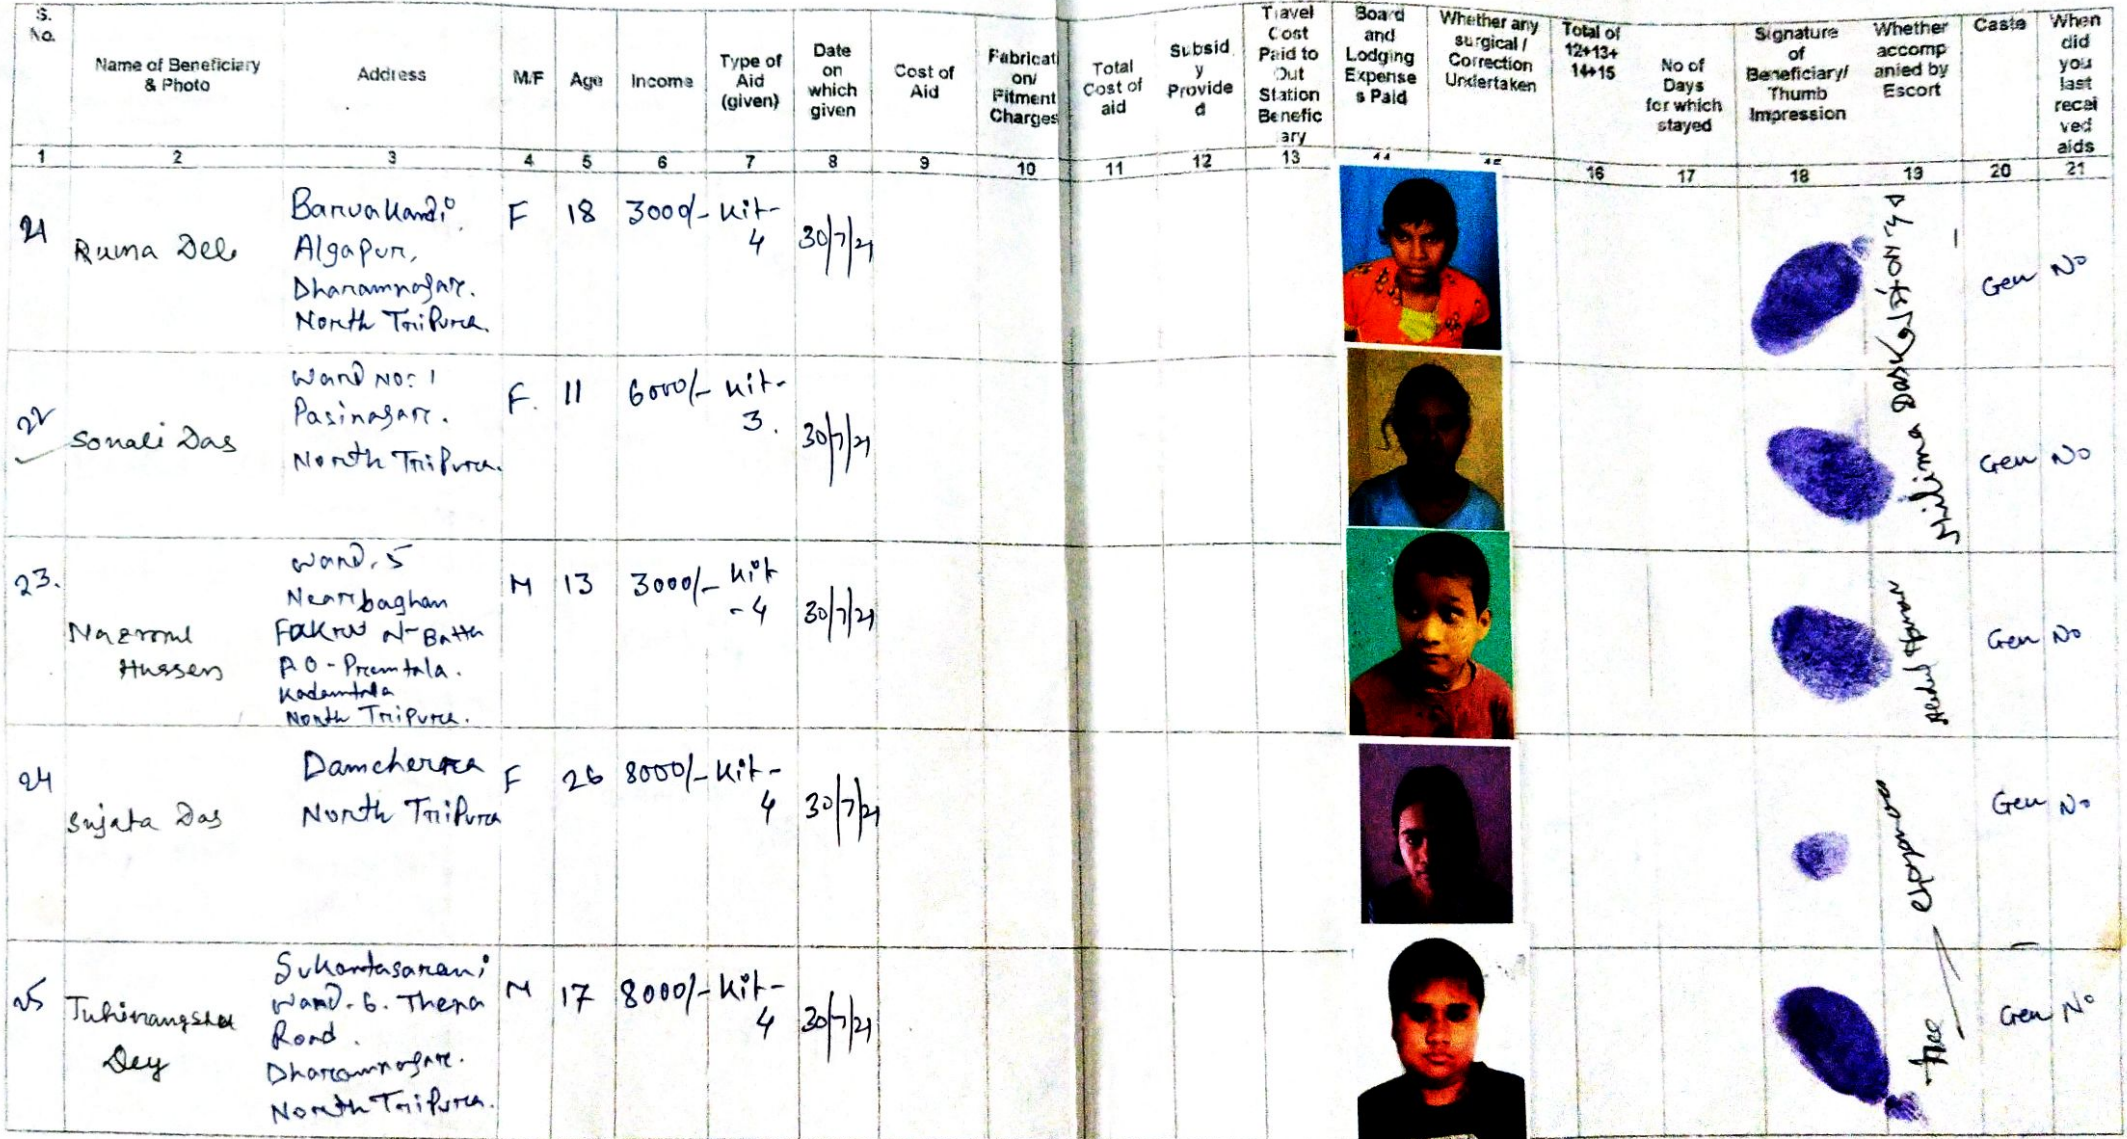 S. No.
Name of Beneficiary & Photo
Address
M/F
Age
Income
Type of Aid (given)
Date on which given
Cost of Aid
Fabricati on/ Fitment Charges
Total Cost of aid
Subsid y Provide d
Travel Cost Paid to Out Station Benefic ary
Board and Lodging Expense s Paid
Whether any surgical / Correction Undertaken
Total of 12+13+ 14+15
No of Days for which stayed
Signature of Beneficiary/ Thumb Impression
Whether accomp anied by Escort
Caste
When did you last recei ved aids
1 2 3 4 5 6 7 8 9 10 11 12 13 14 15 16 17 18 19 20 21
21 Ruma Deb
Algapur,
Dharamnagar.
North Tripura.
F 18 3000/- Kit-4 30/7/21 Gen No
22 Sonali Das
Ward No: 1
Pasinagar.
North Tripura.
F. 11 6000/- Kit-3. 30/7/21 Gen No
23. Nazrul Hussen
Ward. 5
P.O - Premtala.
Kadamtala
North Tripura.
M 13 3000/- Kit-4 30/7/21 Gen No
24 Sujata Das
Damcherra
North Tripura
F 26 8000/- Kit-4 30/7/21 Gen No
25 Tuhinangshu Dey
Sukantasarani
Ward. 6. Thana
Road.
Dharamnagar.
North Tripura.
M 17 8000/- Kit-4 30/7/21 Gen No